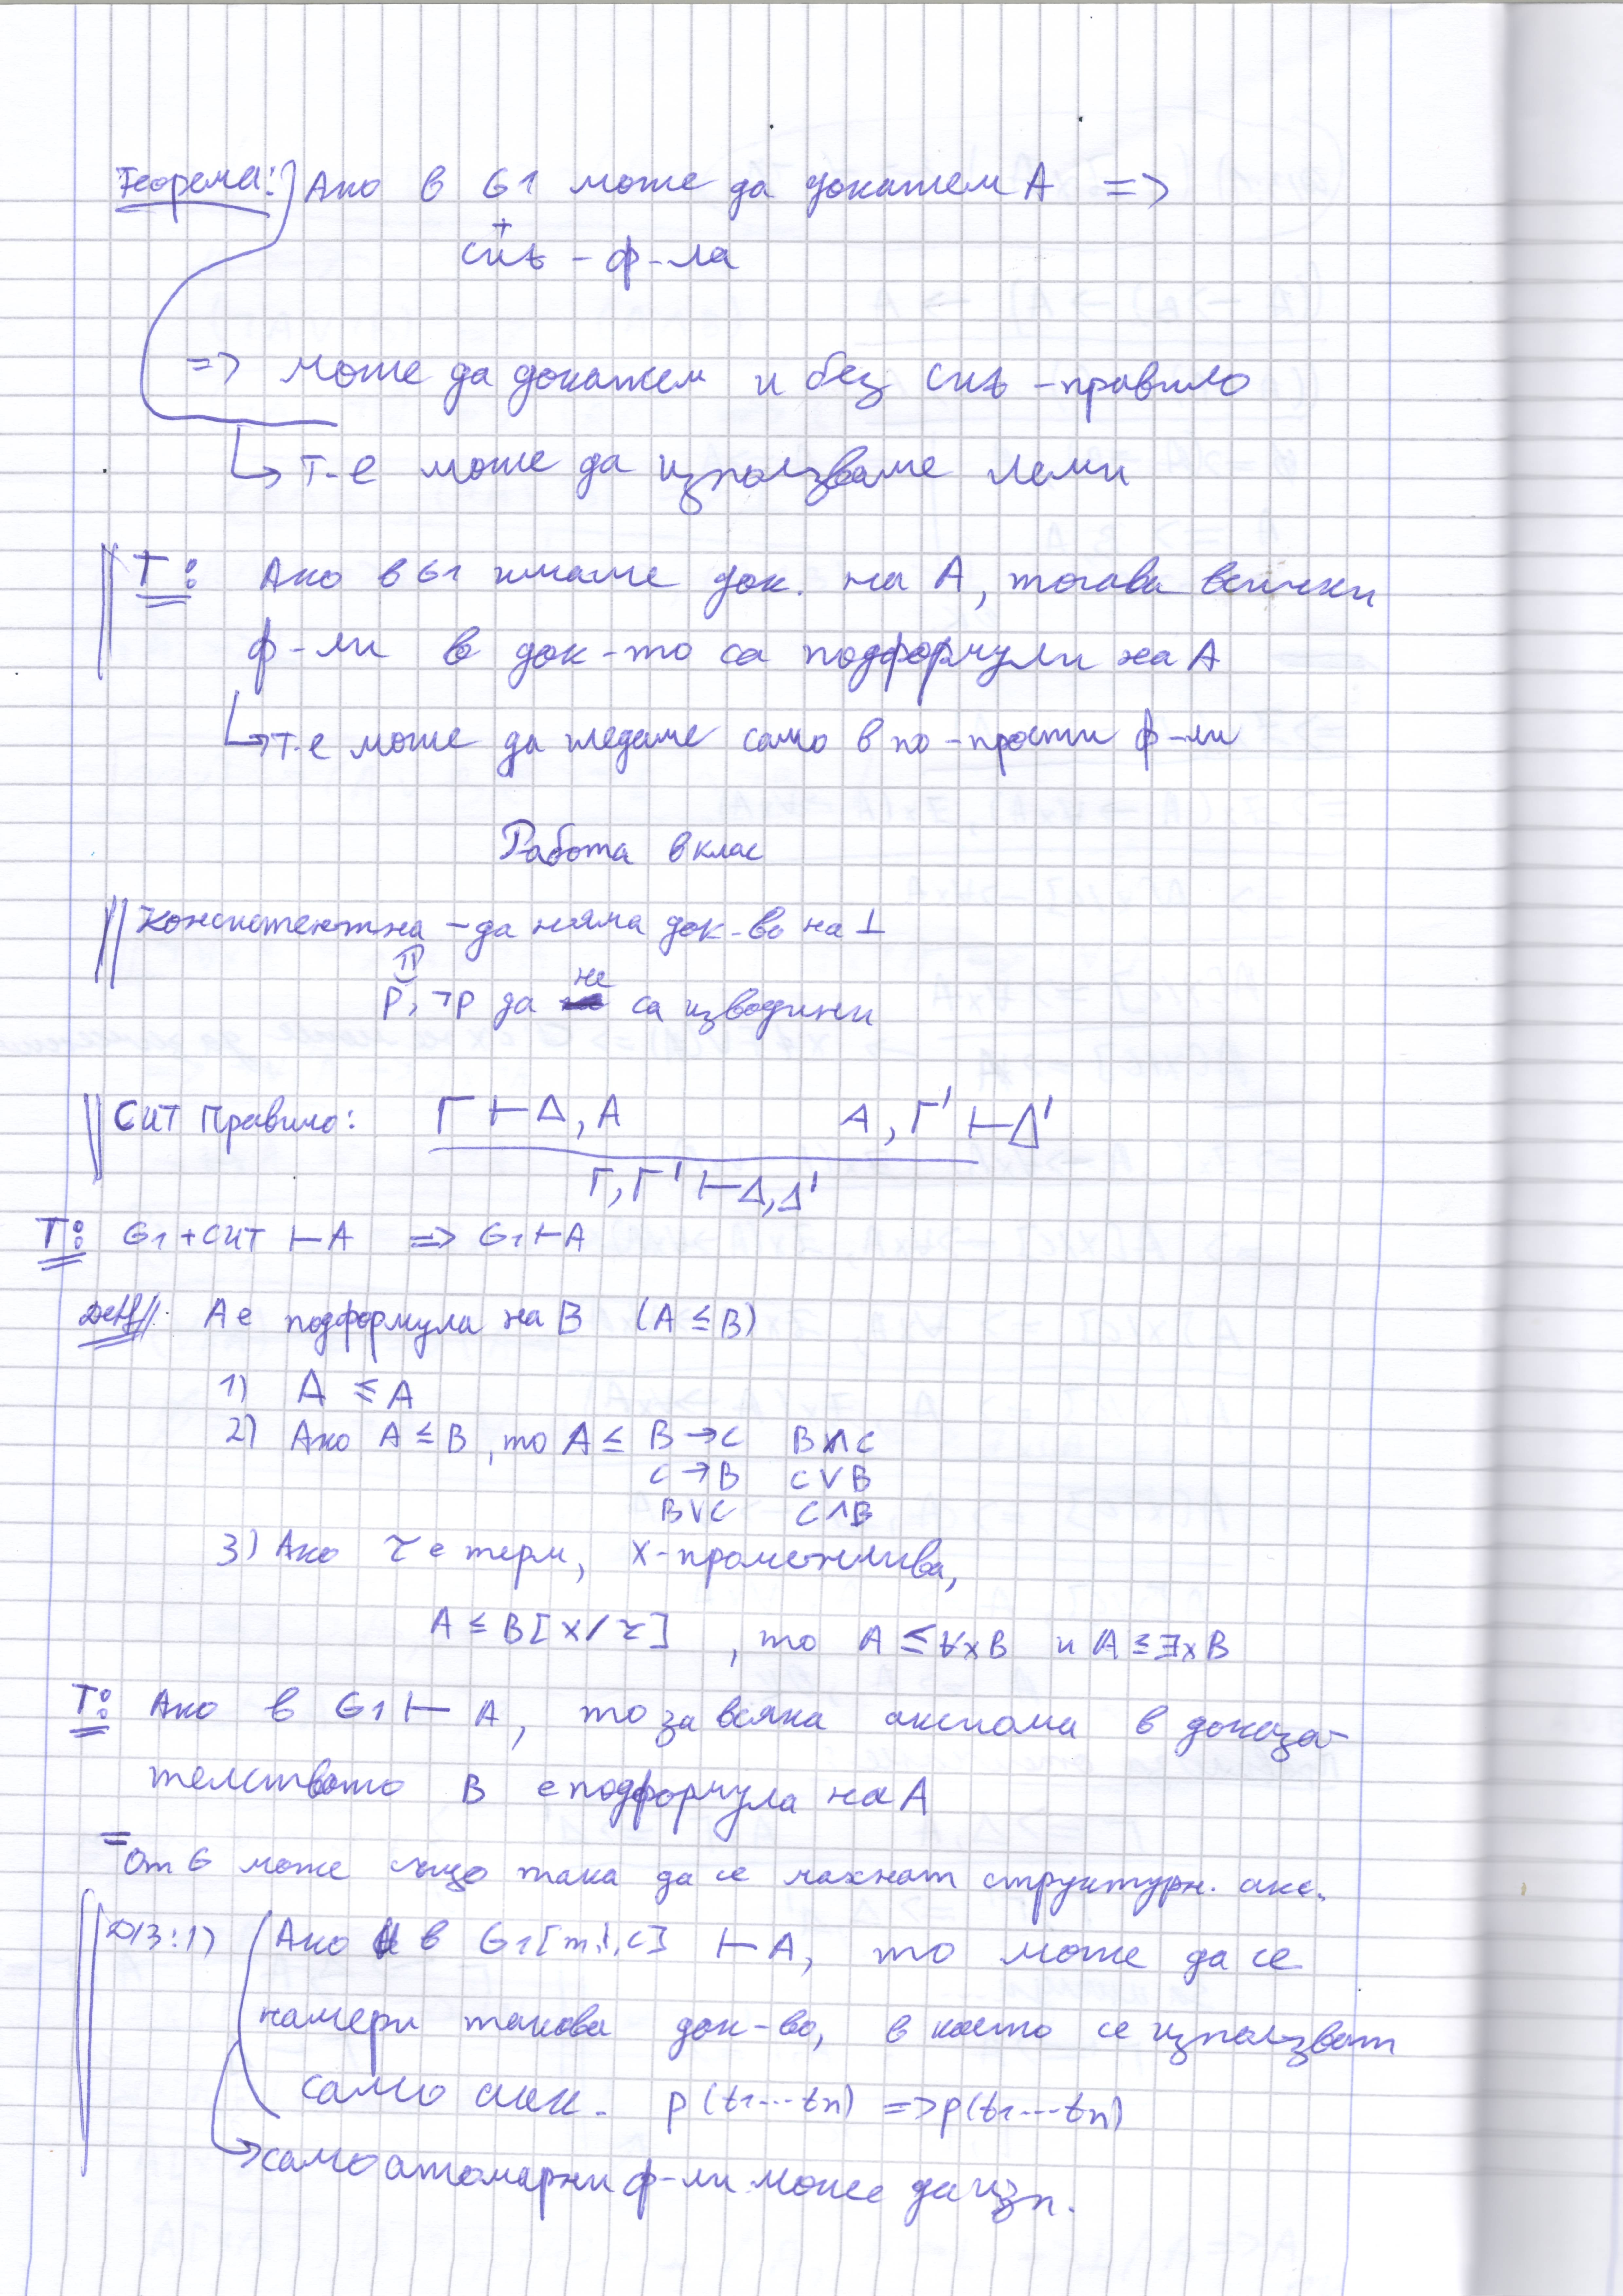 Теорема: Ако в G1 може да докажем A =>
+
cut - ф-ла
=> може да докажем и без cut - правило
т-е може да използваме леми
Т: Ако в G1 имаме док. на A, тогава всички
ф-ли в док-то са подформули на A
т-е може да гледаме само в по-прости ф-ли
Работа в клас
Консистентна - да няма док-во на ⊥
p, ¬p да не са изводими
CUT Правило: Γ ⊢ Δ, A A, Γ' ⊢ Δ'
Γ, Γ' ⊢ Δ, Δ'
Т: G1 + CUT ⊢ A => G1 ⊢ A
Деф: A е подформула на B (A ≤ B)
1) A ≤ A
2) Ако A ≤ B, то A ≤ B → C B ∧ C
C → B C ∨ B
B ∨ C C ∧ B
3) Ако τ е терм, x - променлива,
A ≤ B[x/τ], то A ≤ ∀xB и A ≤ ∃xB
Т: Ако в G1 ⊢ A, то за всяка аксиома в доказа-
телството B е подформула на A
= От G може също така да се махнат структурн. акс.
ДЗ: 1) Ако в G1[m,i,c] ⊢ A, то може да се
намери такова док-во, в което се използват
само акс. p(t1...tn) => p(t1...tn)
само атомарни ф-ли може да изп.